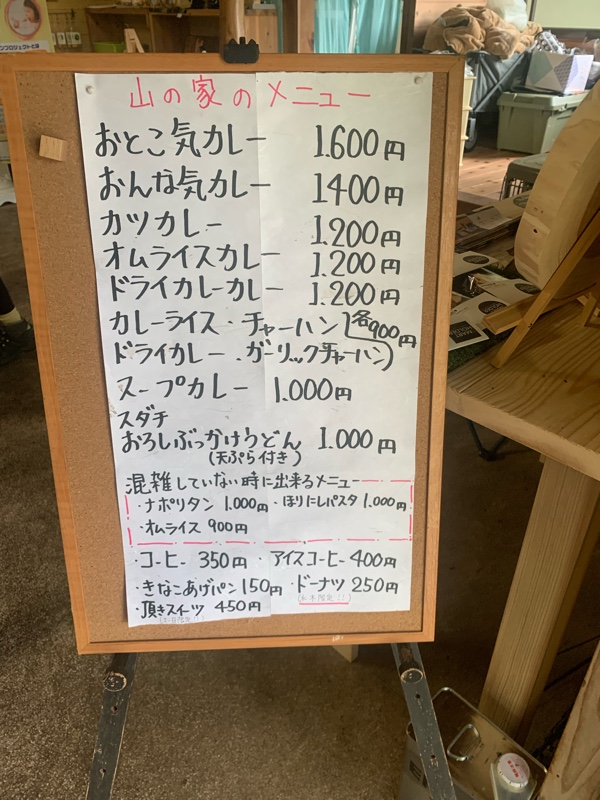 山の家のメニュー
おとこ気カレー 1.600円
おんな気カレー 1400円
カツカレー 1.200円
オムライスカレー 1.200円
ドライカレーカレー 1.200円
カレーライス・チャーハン 各900円
ドライカレー・ガーリックチャーハン
スープカレー 1.000円
スダチ
おろしぶっかけうどん 1.000円
(天ぷら付き)
混雑していない時に出来るメニュー
・ナポリタン 1.000円 ・ほりにしパスタ 1.000円
・オムライス 900円
・コーヒー 350円 ・アイスコーヒー 400円
・きなこあげパン 150円 ・ドーナツ 250円
・頂きスイーツ 450円